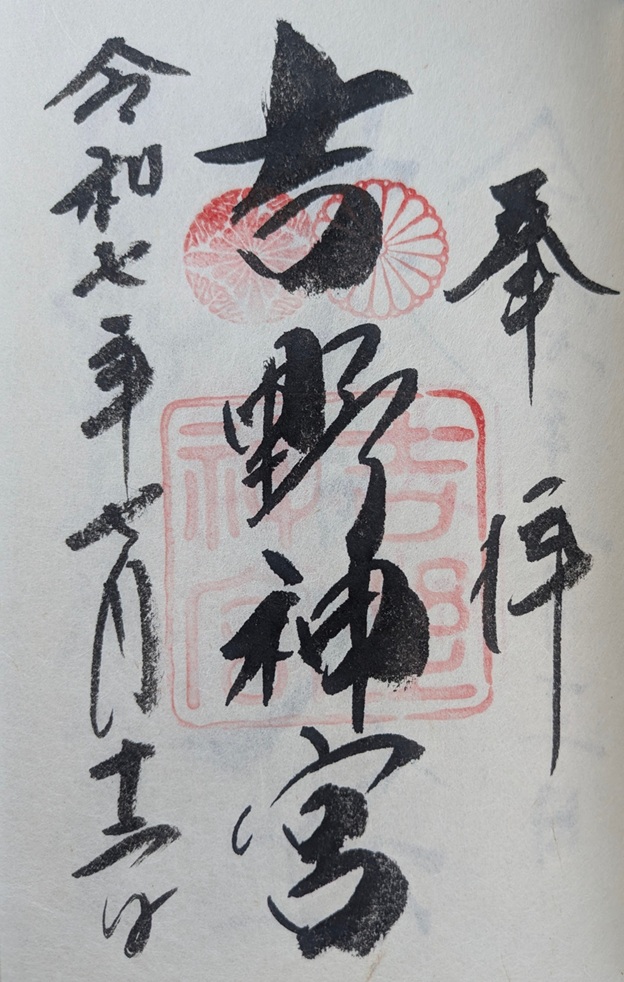 奉拝
吉野神宮
令和七年七月十二日
吉野
神宮